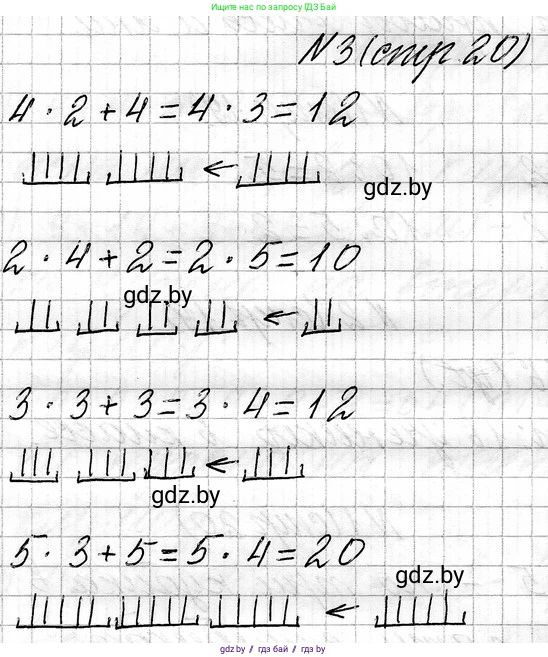 Ищите нас по запросу ГДЗ Бай
N 3 (стр. 20)
4 · 2 + 4 = 4 · 3 = 12
gdz.by
2 · 4 + 2 = 2 · 5 = 10
gdz.by
3 · 3 + 3 = 3 · 4 = 12
gdz.by
5 · 3 + 5 = 5 · 4 = 20
gdz.by
gdz.by // гдз бай // гдз by